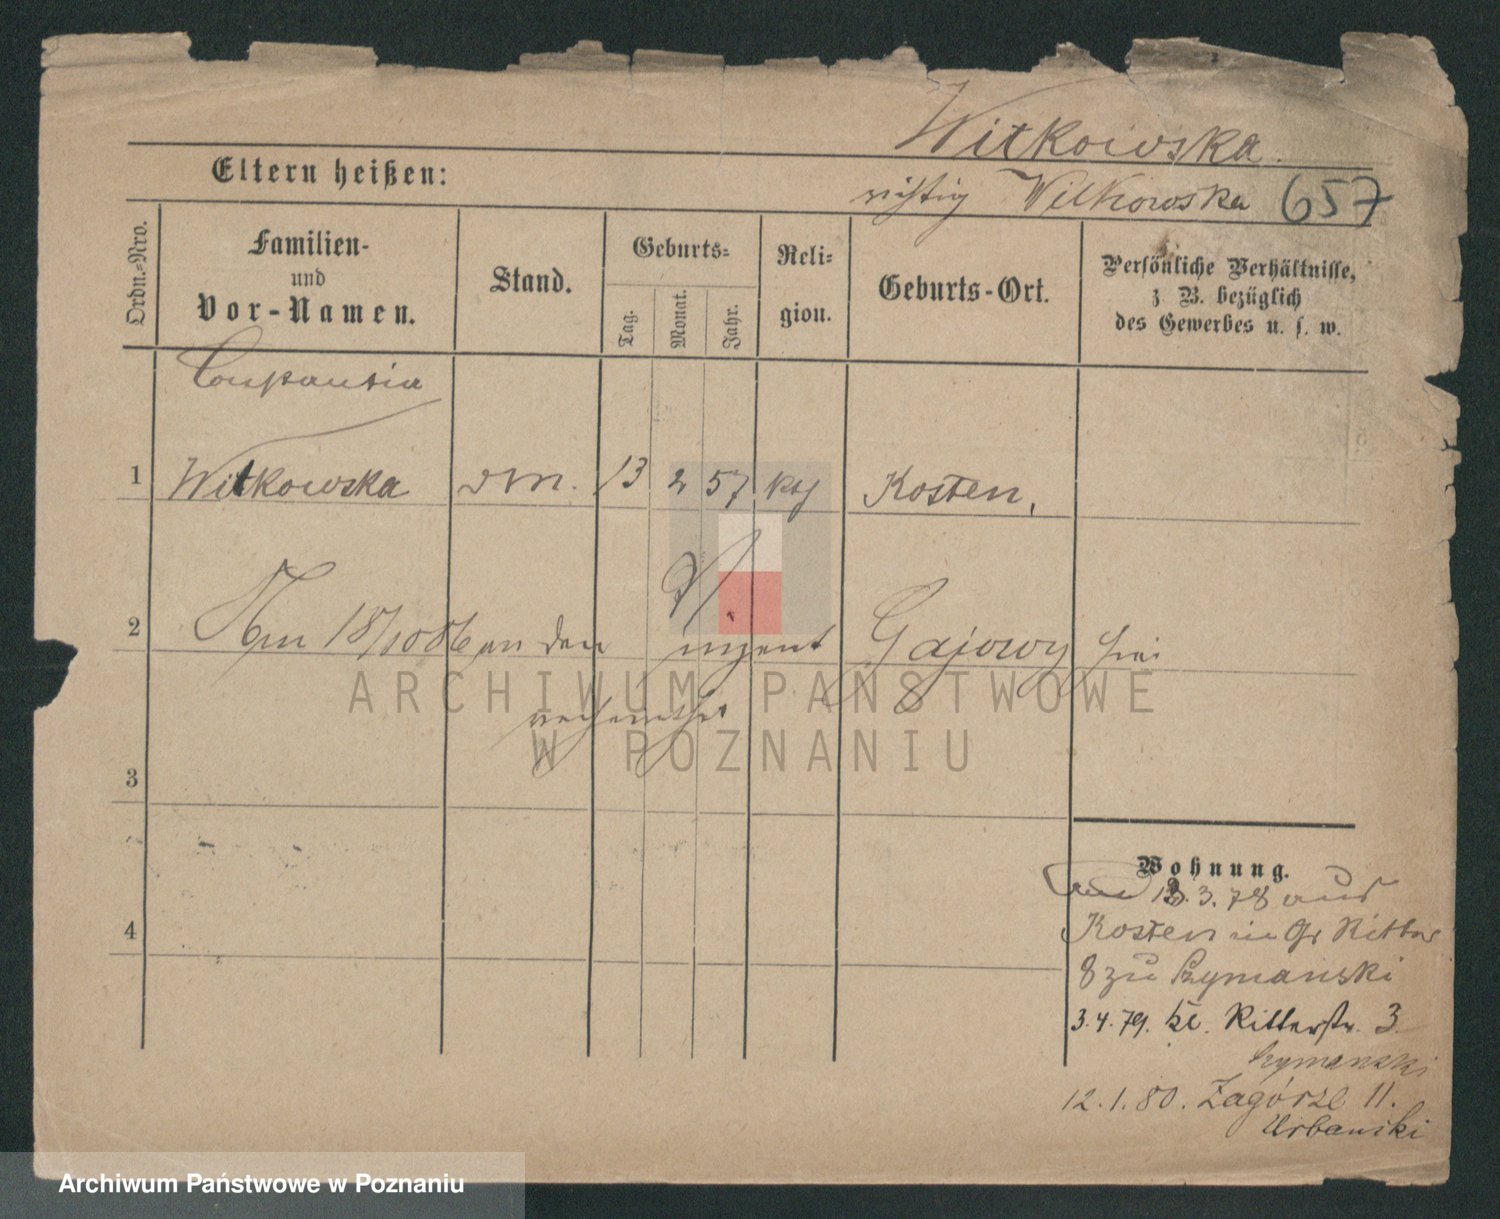 Witkowska.
Eltern heißen:
richtig Wilkowska 657
Ordn.-Nro.
Familien-
und
Vor-Namen.
Stand.
Geburts-
Tag.
Monat.
Jahr.
Reli-
gion.
Geburts-Ort.
Persönliche Verhältnisse,
z. B. bezüglich
des Gewerbes u. s. w.
Constantia
1 Witkowska 13 2 57 kth Kosten,
2 Am 18/10 86 an den Gajowy hier
verheirathet
3
4
Wohnung.
3. 78 aus
Kosten in Gr Ritter
8 zu Szymanski
3. 4. 79. kl. Ritterstr. 3.
Szymanski
12. 1. 80. Zagórze 11.
Urbanski
ARCHIWUM PAŃSTWOWE
W POZNANIU
Archiwum Państwowe w Poznaniu